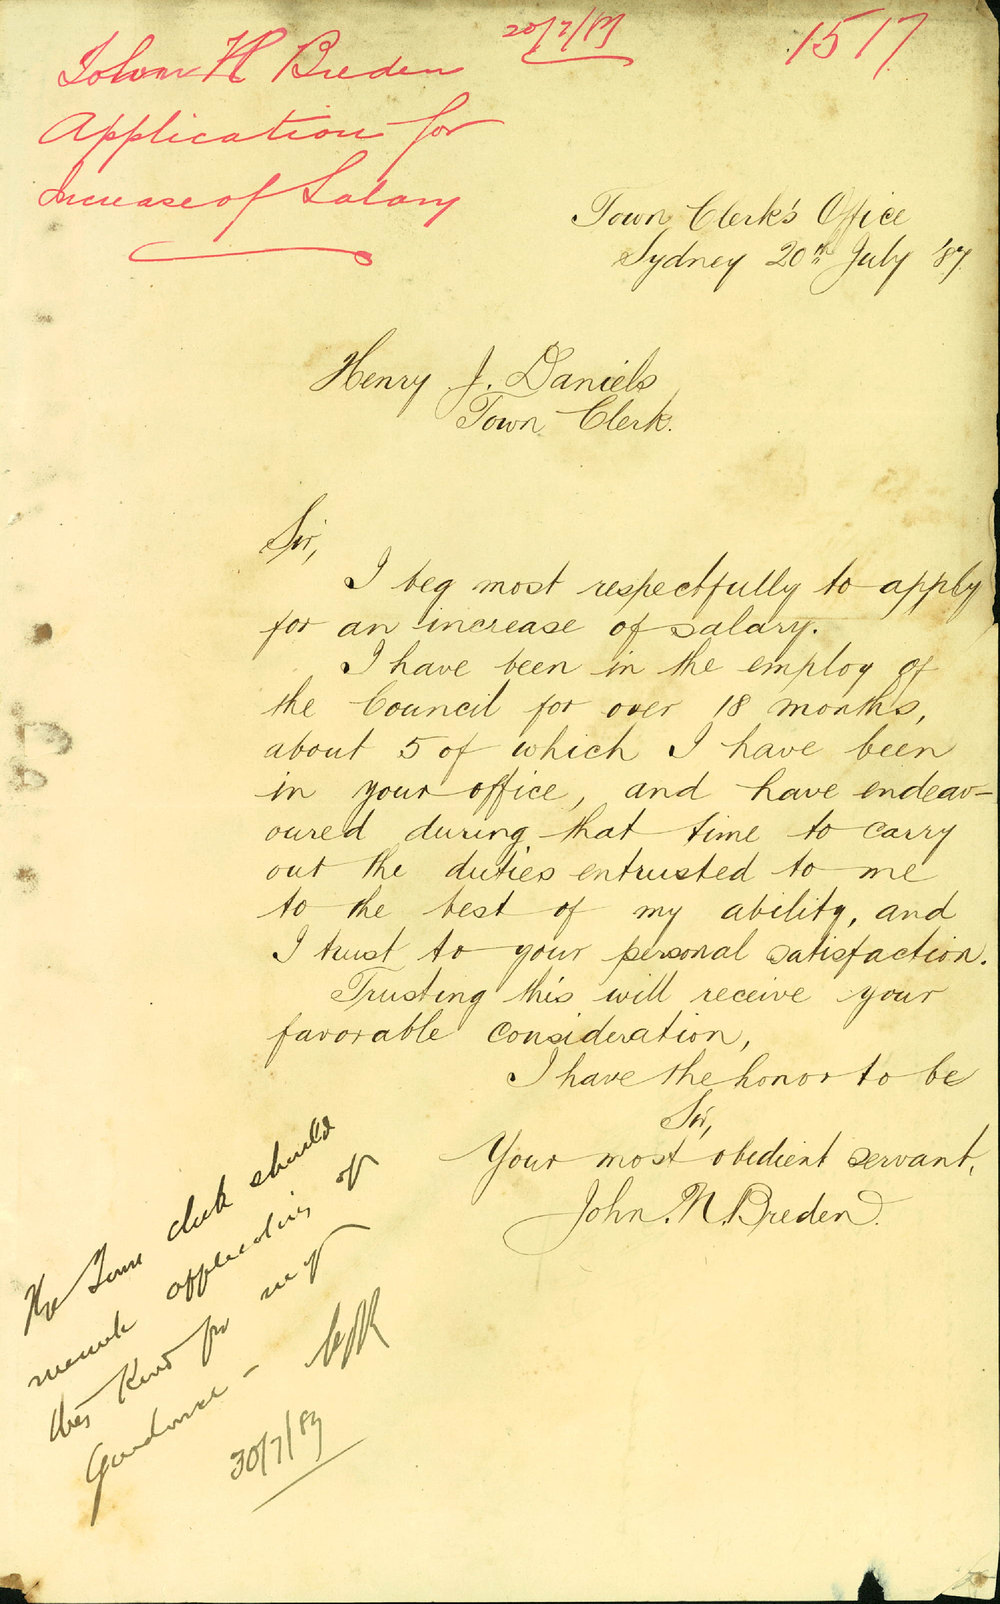 20/7/87
1517
John H Breden
Application for
Increase of Salary
Town Clerk's Office
Sydney 20th July '87.
Henry J. Daniels
Town Clerk.
Sir,
I beg most respectfully to apply
for an increase of salary.
I have been in the employ of
the Council for over 18 months,
about 5 of which I have been
in your office, and have endeav-
oured during that time to carry
out the duties entrusted to me
to the best of my ability, and
I trust to your personal satisfaction.
Trusting this will receive your
favorable consideration,
I have the honor to be
Sir,
Your most obedient servant,
John. H. Breden.
The Town Clerk should
applications of
this kind for my
Guidance –
30/7/87